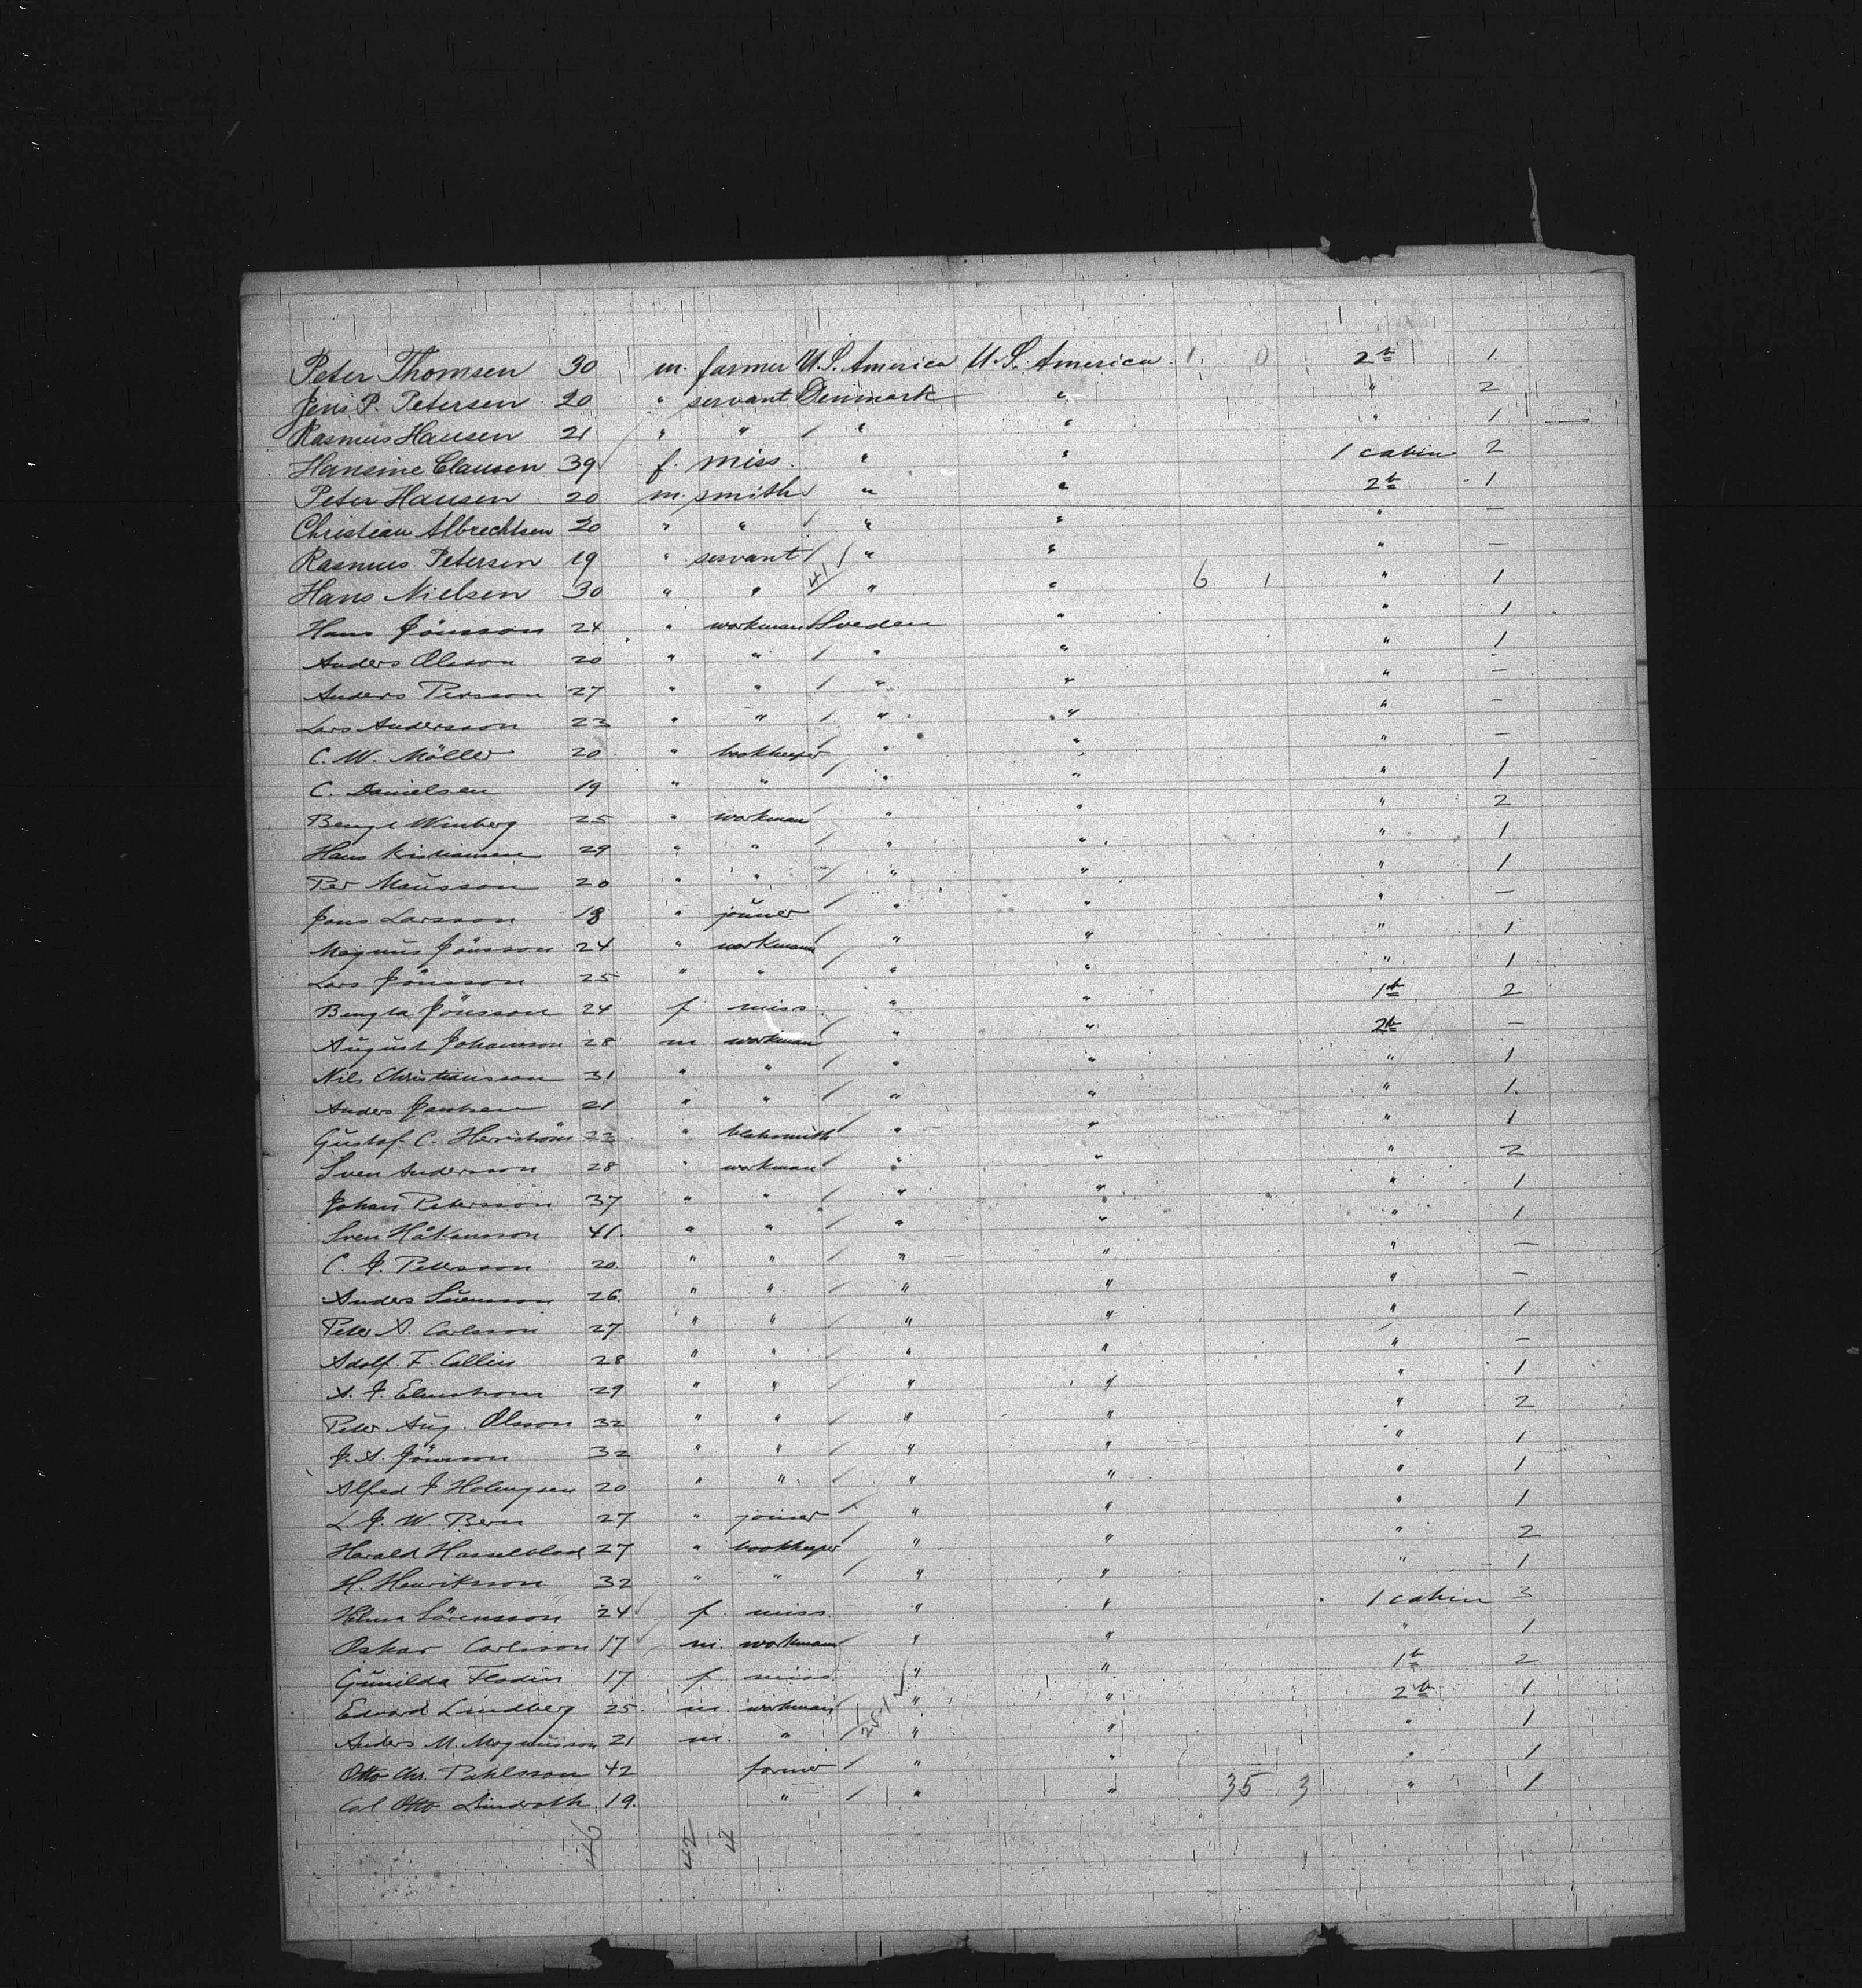 Peter Thomsen 30 m. farmer U.S. America U.S. America 1. 0 2<sup>d</sup> 1
Jens P. Petersen 20 " servant Denmark " " 2
Rasmus Hansen 21 " " / " " " 1
Hansine Clausen 39 f. miss. " " 1 cabin 2
Peter Hansen 20 m. smith " " 1
Christian Albrechtsen 20 " " / " " " —
Rasmus Petersen 19 " servant / / " " " —
Hans Nielsen 30 " " 41 " " 6 1 " 1
Hans Jönsson 24 " workman Sveden " " 1
Anders Olsson 20 " " / " " " 1
Anders Persson 27 " " / " " " —
Lars Andersson 23 " " / " " " —
C. W. Möller 20 " bookkeeper / " " " —
C. Danielsen 19 " " / " " " 1
Bengt Winberg 25 " workman / " " " 2
Hans Kristiansen 29 " " / " " " 1
Per Mansson 20 " " / " " " 1
Jöns Larsson 18 " joiner / " " " —
Magnus Jönsson 24 " workman / " " " 1
Lars Jönsson 25 " " / " " " 1
Bengta Jönsson 24 f miss " " 2
August Johansson 28 m. workman / " " —
Nils Christiansson 31 " " / " " " 1
Anders 21 " " / " " " 1.
Gustaf C. 23 " blaksmith / " " " 1
Sven Andersson 28 " workman / " " " 2
Johan Petersson 37 " " / " " " 1
Sven Håkansson 41. " " / " " " 1
C. J. Petersson 20. " " / " " " —
Anders Svensson 26. " " / " " " —
Peter A. Carlsson 27 " " / " " " 1
Adolf. F. Collin 28 " " / " " " —
A. J. 29 " " / " " " 1
Peter Aug. Olsson 32 " " / " " " 2
J. A. Jönsson 32 " " / " " " 1
Alfred J Holmgren 20 " " / " " " 1
L. J. W. Bern 27 " joiner / " " " 1
Harald Hasselblad 27 " bookkeeper / " " " 2
H. Henriksson 32 " " / " " " 1
Sörensson 24 f. miss. " " 1 cabin 3
Oskar Carlsson 17 m. workman / " " " 1
Gunilda Flodin 17 f miss " " 2
Edvard Lindberg 25. m. workman / " " 1
Anders M. Magnusson 21 m. " / " " " 1
Otto Chr. Pahlsson 42 farmer / " " " 1
Carl Otto Lindroth. 19. " / " " 35 3 " 1
46 42 4